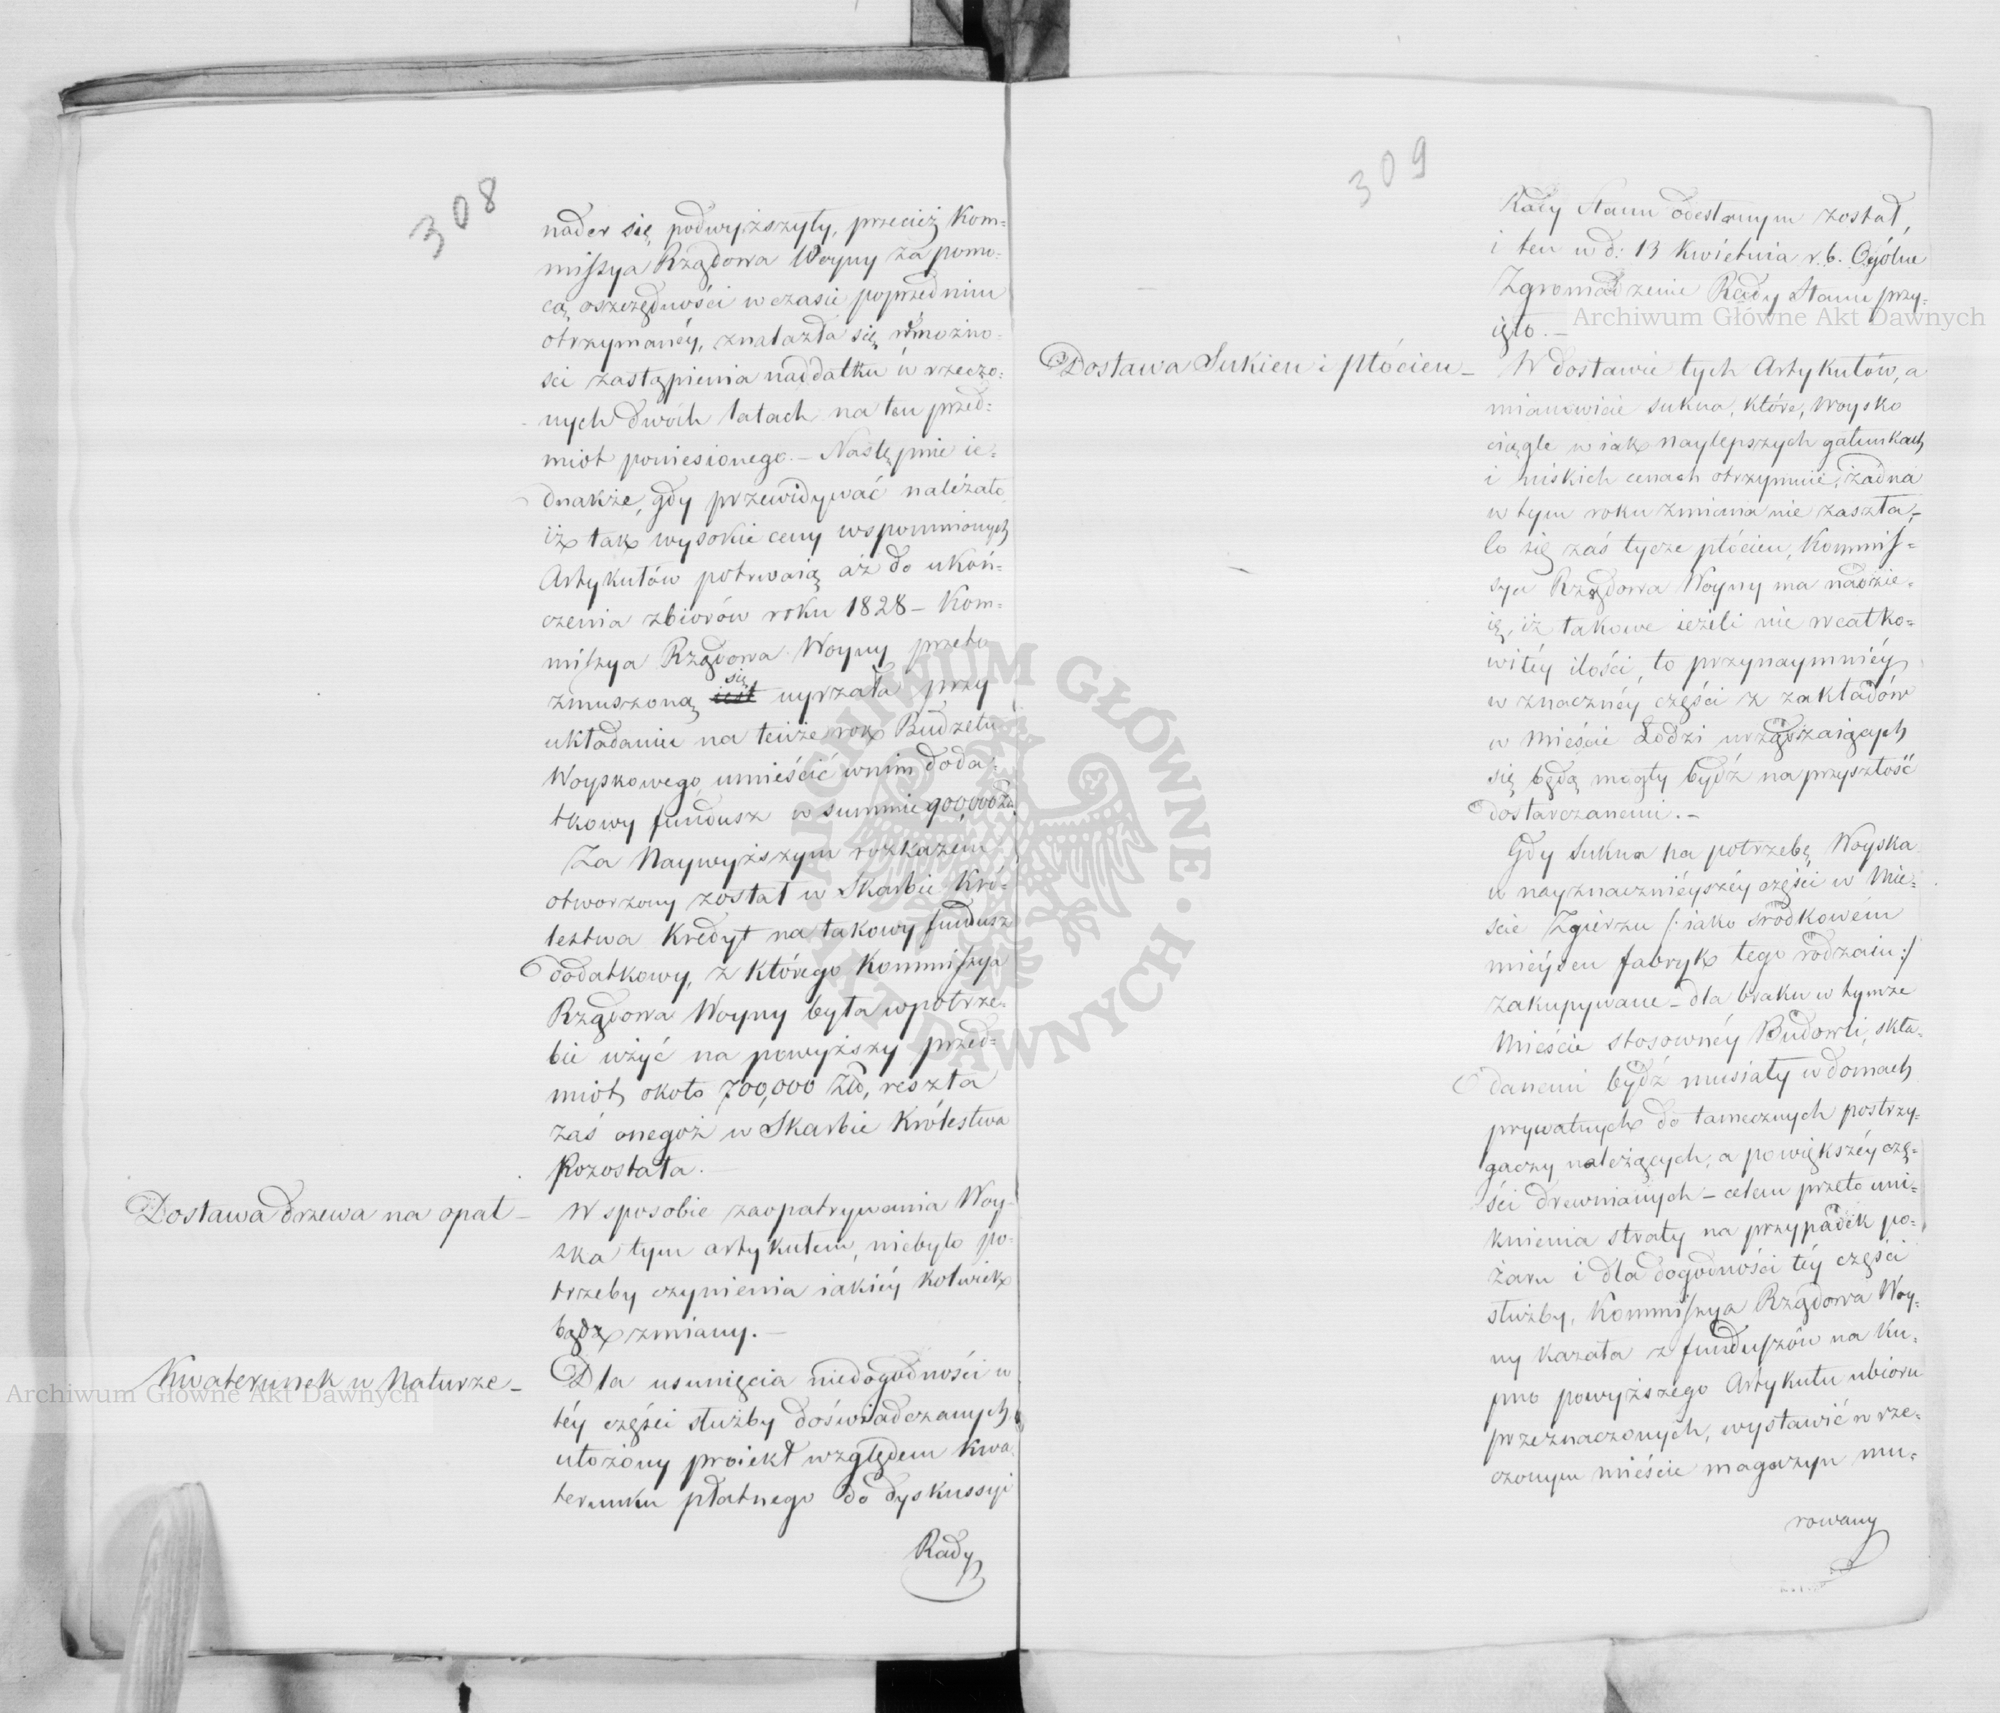 308
nader się podwyższyły, przecież Kom=
missya Rządowa Woyny za pomo=
cą oszczędności w czasie poprzednim
otrzymanéy, znalazła się w możno=
ści zastąpienia naddatku w rzeczo=
nych dwóch latach na ten przed=
miot poniesionego. — Następnie ie=
dnakże, gdy przewidywać należało
iż tak wysokie ceny wspomnionych
Artykułów potrwaią aż do ukoń=
czenia zbiorów roku 1828 — Kom=
missya Rządowa Woyny przeto
zmuszoną iest się uyrzała przy
układaniu na tenże rok Budżetu
Woyskowego umieścić w nim doda=
tkowy fundusz w summie 900,000 Zło
Za Naywyższym rozkazem
otworzony został w Skarbie Kró=
lestwa Kredyt na takowy fundusz
dodatkowy, z którego Kommissya
Rządowa Woyny była w potrze=
bie użyć na powyższy przed=
miot około 700,000 Zło, reszta
zaś onegoż w Skarbie Królestwa
Pozostała. —
Dostawa drzewa na opał —
W sposobie zaopatrywania Woy=
ska tym artykułem, niebyło po=
trzeby czynienia iakiéy kolwiek
bądź zmiany. —
Kwaterunek w Naturze —
Dla usunięcia niedogodności w
téy części służby doświadczanych,
ułożony proiekt względem Kwa
terunku płatnego do dyskussyi
Rady
309
Rady Stanu odesłanym został,
i ten w d: 13 Kwietnia r. b. Ogólne
Zgromadzenie Rady Stanu przy=
ięło. —
Dostawa Sukien i płócien —
W dostawie tych Artykułów, a
mianowicie sukna, które, Woysko
ciągle w iak naylepszych gatunkach
i niskich cenach otrzymuie, żadna
w tym roku zmiana nie zaszła, —
Co się zaś tycze płócien, Kommis=
sya Rządowa Woyny ma nadzie=
ię, iż takowe ieżeli nie w całko=
witéy ilości, to przynaymniéy
w znacznéy części z zakładów
w Mieście Łodzi urządzaiących
się będą mogły bydź na przyszłość
dostarczanemi. —
Gdy Sukna na potrzebę Woyska
w nayznacznieyszéy części w Mie=
ście Zgierzu /: iako środkowém
mieyscu fabryk tego rodzaiu :/
zakupywane — dla braku w tymże
Mieście stosownéy Budowli, skła=
danemi bydź musiały w domach
prywatnych do tamecznych postrzy=
gaczy należących, a po większéy czę=
ści drewnianych — celem przeto uni=
knienia straty na przypadek po=
żaru i dla dogodności téy części
służby, Kommissya Rządowa Woy=
ny kazała z funduszów na Ku=
pno powyższego Artykułu ubioru
przeznaczonych, wystawić w rze=
czonym mieście magazyn mu=
rowany
Archiwum Główne Akt Dawnych
Archiwum Główne Akt Dawnych
ARCHIWUM GŁÓWNE · AKT DAWNYCH ·